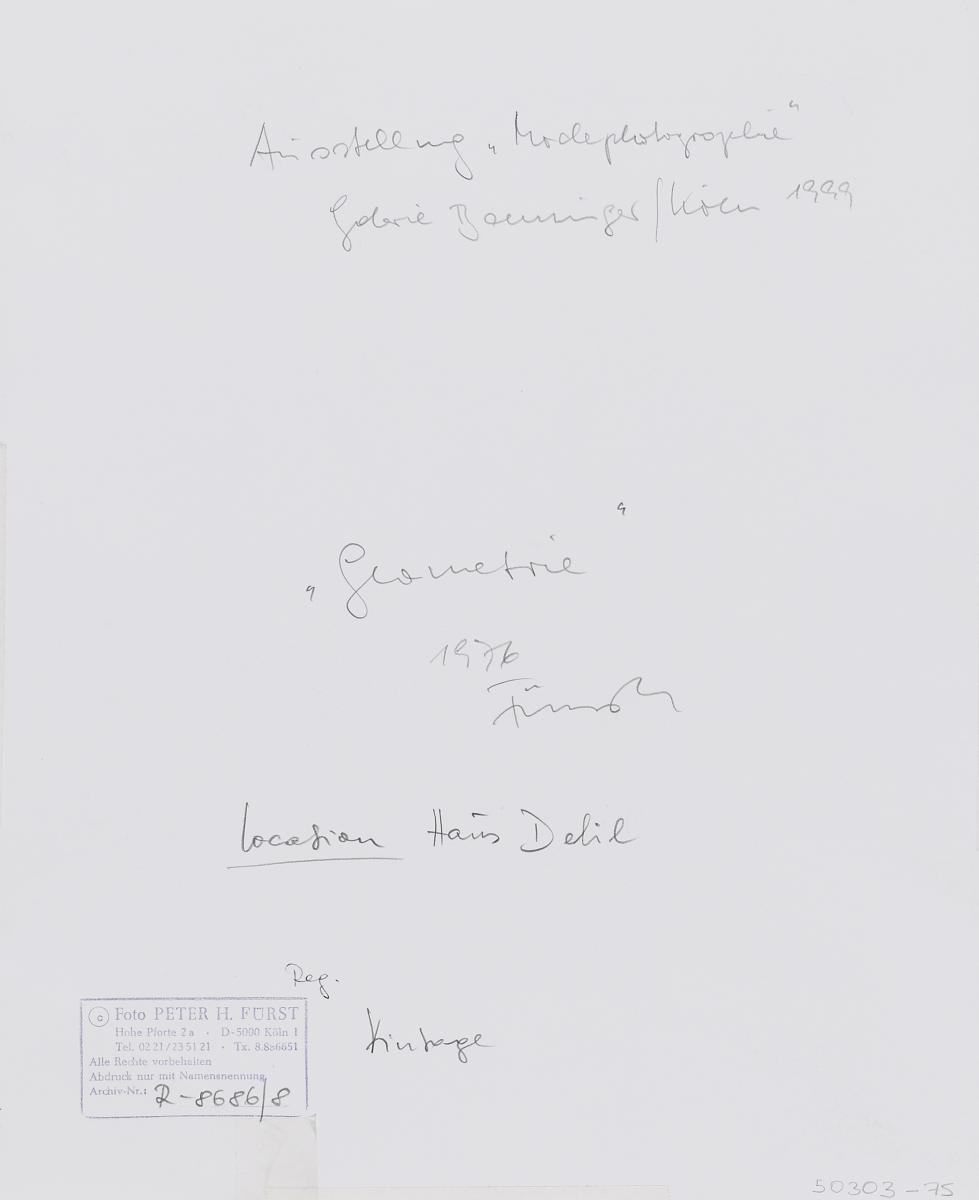 Ausstellung „Modephotographie“
Galerie Baeuninger/Köln 1999
„Geometrie“
1976
Fürst
Location Haus Delil
Reg.
Vintage
© Foto PETER H. FÜRST
Hohe Pforte 2a · D-5000 Köln 1
Tel. 0221/235121 · Tx. 8.886651
Alle Rechte vorbehalten
Abdruck nur mit Namensnennung
Archiv-Nr.: R-8686/8
50303-75